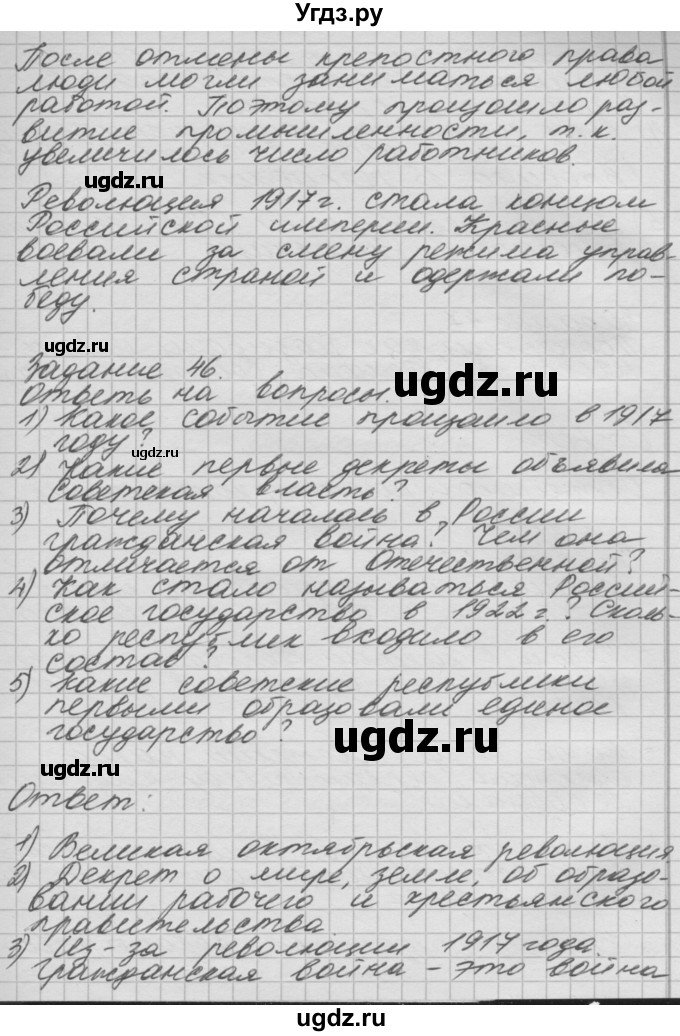 Угдз.ру
После отмены крепостного права
люди могли заниматься любой
работой. Поэтому произошло раз-
витие промышленности, т.к.
увеличилось число работников.
ugdz.ru
Революция 1917 г. стала концом
Российской империи. Красные
воевали за смену режима управ-
ления страной и одержали по-
беду.
ugdz.ru
Задание 46.
ugdz.ru
Ответь на вопросы.
1) Какое событие произошло в 1917
году?
ugdz.ru
2) Какие первые декреты объявила
советская власть?
3) Почему началась в России
гражданская война? Чем она
отличается от Отечественной?
4) Как стало называться Россий-
ское государство в 1922 г.? Сколь-
ко республик входило в его
состав?
5) Какие советские республики
первыми образовали единое
государство?
ugdz.ru
ugdz.ru
Ответ:
1) Великая октябрьская революция
2) Декрет о мире, земле, об образо-
вании рабочего и крестьянского
правительства.
3) Из-за революции 1917 года.
Гражданская война - это война
ugdz.ru
ugdz.ru